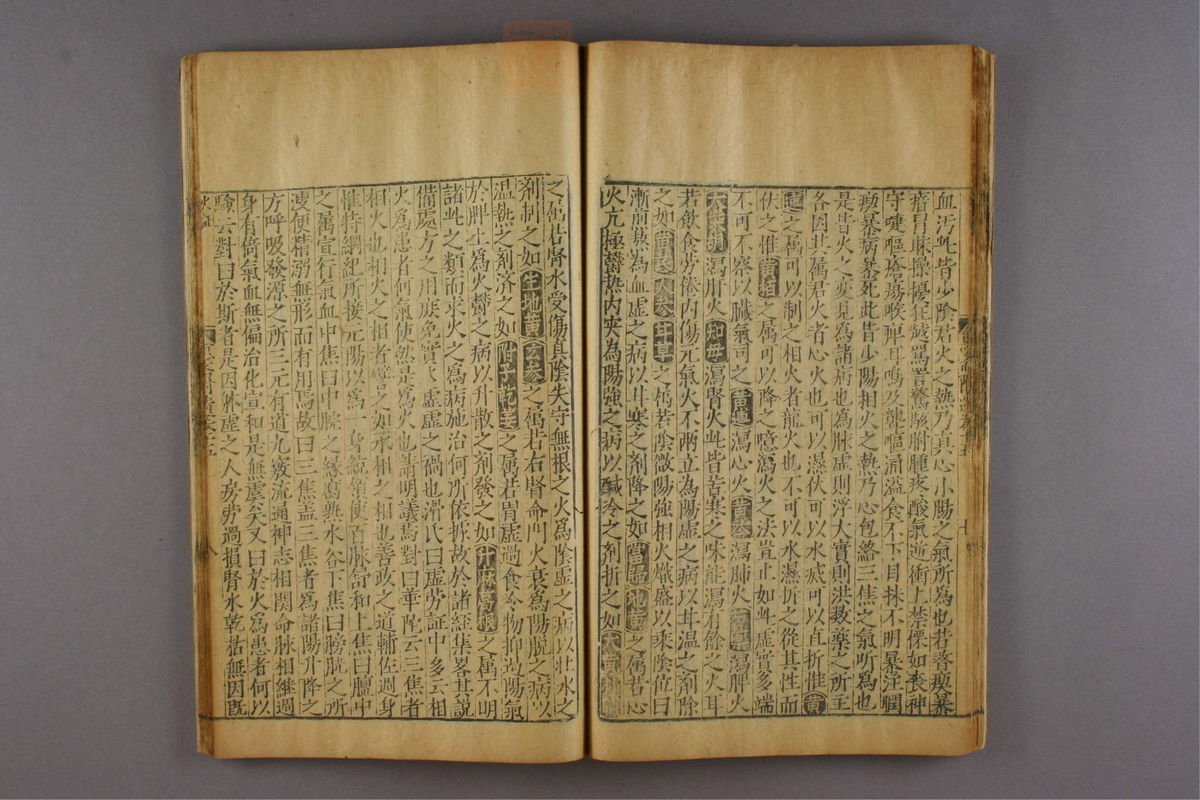 血汚此皆少陰君火之熱乃真心小腸之氣所為也若瞀瘈暴
瘖冒昧躁擾狂越罵詈驚駭胕腫疼酸氣逆衝上禁慄如喪神
守嚏嘔瘡瘍喉痺耳鳴及聾嘔涌溢食不下目昧不明暴注瞤
瘈暴病暴死此皆少陽相火之熱乃心包絡三焦之氣所為也
是皆火之變見為諸病也為脉虚則浮大實則洪数藥之所主
各因其属君火者心火也可以濕伏可以水滅可以直折惟黄
連之属可以制之相火者龍火也不可以水濕折之從其性而
伏之惟黄栢之属可以降之噫瀉火之法豈止如此虚實多端
不可不察以臟氣司之黄連瀉心火黄芩瀉肺火芍藥瀉脾火
瀉肝火知母瀉腎火此皆苦寒之味能瀉有餘之火耳
若飲食劳倦内傷元氣火不兩立為陽虚之病以甘温之剤除
之如黄芪人参甘草之属若陰微陽強相火熾盛以乘陰位日
漸煎熬為血虚之病以甘寒之剤降之如當歸地黄之属若心
火亢極欝热内实為陽強之病以醎冷之剤折之如大黄朴硝
之属若腎水受傷真陰失守無根之火為陰虚之病以壮水之
剤制之如生地黄玄参之属若右腎命門火衰為陽脱之病以
温熱之剤済之如附子乾姜之属若胃虚過食冷物抑遏陽氣
於脾土為火欝之病以升散之剤發之如升麻葛根之属不明
諸此之類而求火之為病施治何所依據故於諸經集畧其説
備處方之用庶免實實虚虚之禍也滑氏曰虚劳証中多云相
火為患者何氣使然是為火也請明議焉對曰華佗云三焦者
相火也相火之相者譬之如丞相之相也善政之道輔佐遇身
惟持綱紀所接元陽以為一身統領使百脉舒和上焦曰膻中
之属宣行氣血中焦曰中脘之縁腐熟水谷下焦曰膀胱之所
溲便精溺無形而有用焉故曰三焦盖三焦者為諸陽升降之
方呼吸發源之所三元有道九竅流通神志相関命脉相繼遇
身有衛氣血無偏治化宣和是無虞矣又曰於火為患者何以
驗云對曰於斯者是因体虚之人房劳過損腎水乾枯無因既
火証
八